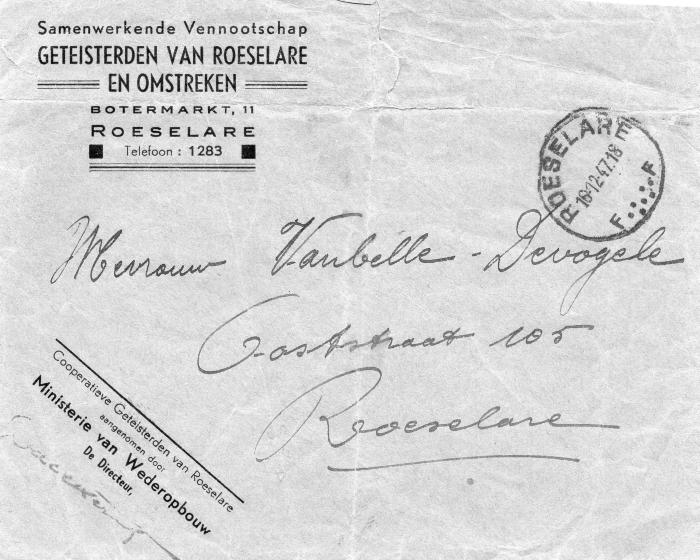 Samenwerkende Vennootschap
GETEISTERDEN VAN ROESELARE
EN OMSTREKEN
BOTERMARKT, 11
ROESELARE
Telefoon : 1283
ROESELARE
18-12-47.18
F F
Mevrouw Vanbelle - Devogele
Ooststraat 105
Roeselare
Cooperatieve Geteisterden van Roeselare
aangenomen door
Ministerie van Wederopbouw
De Directeur,